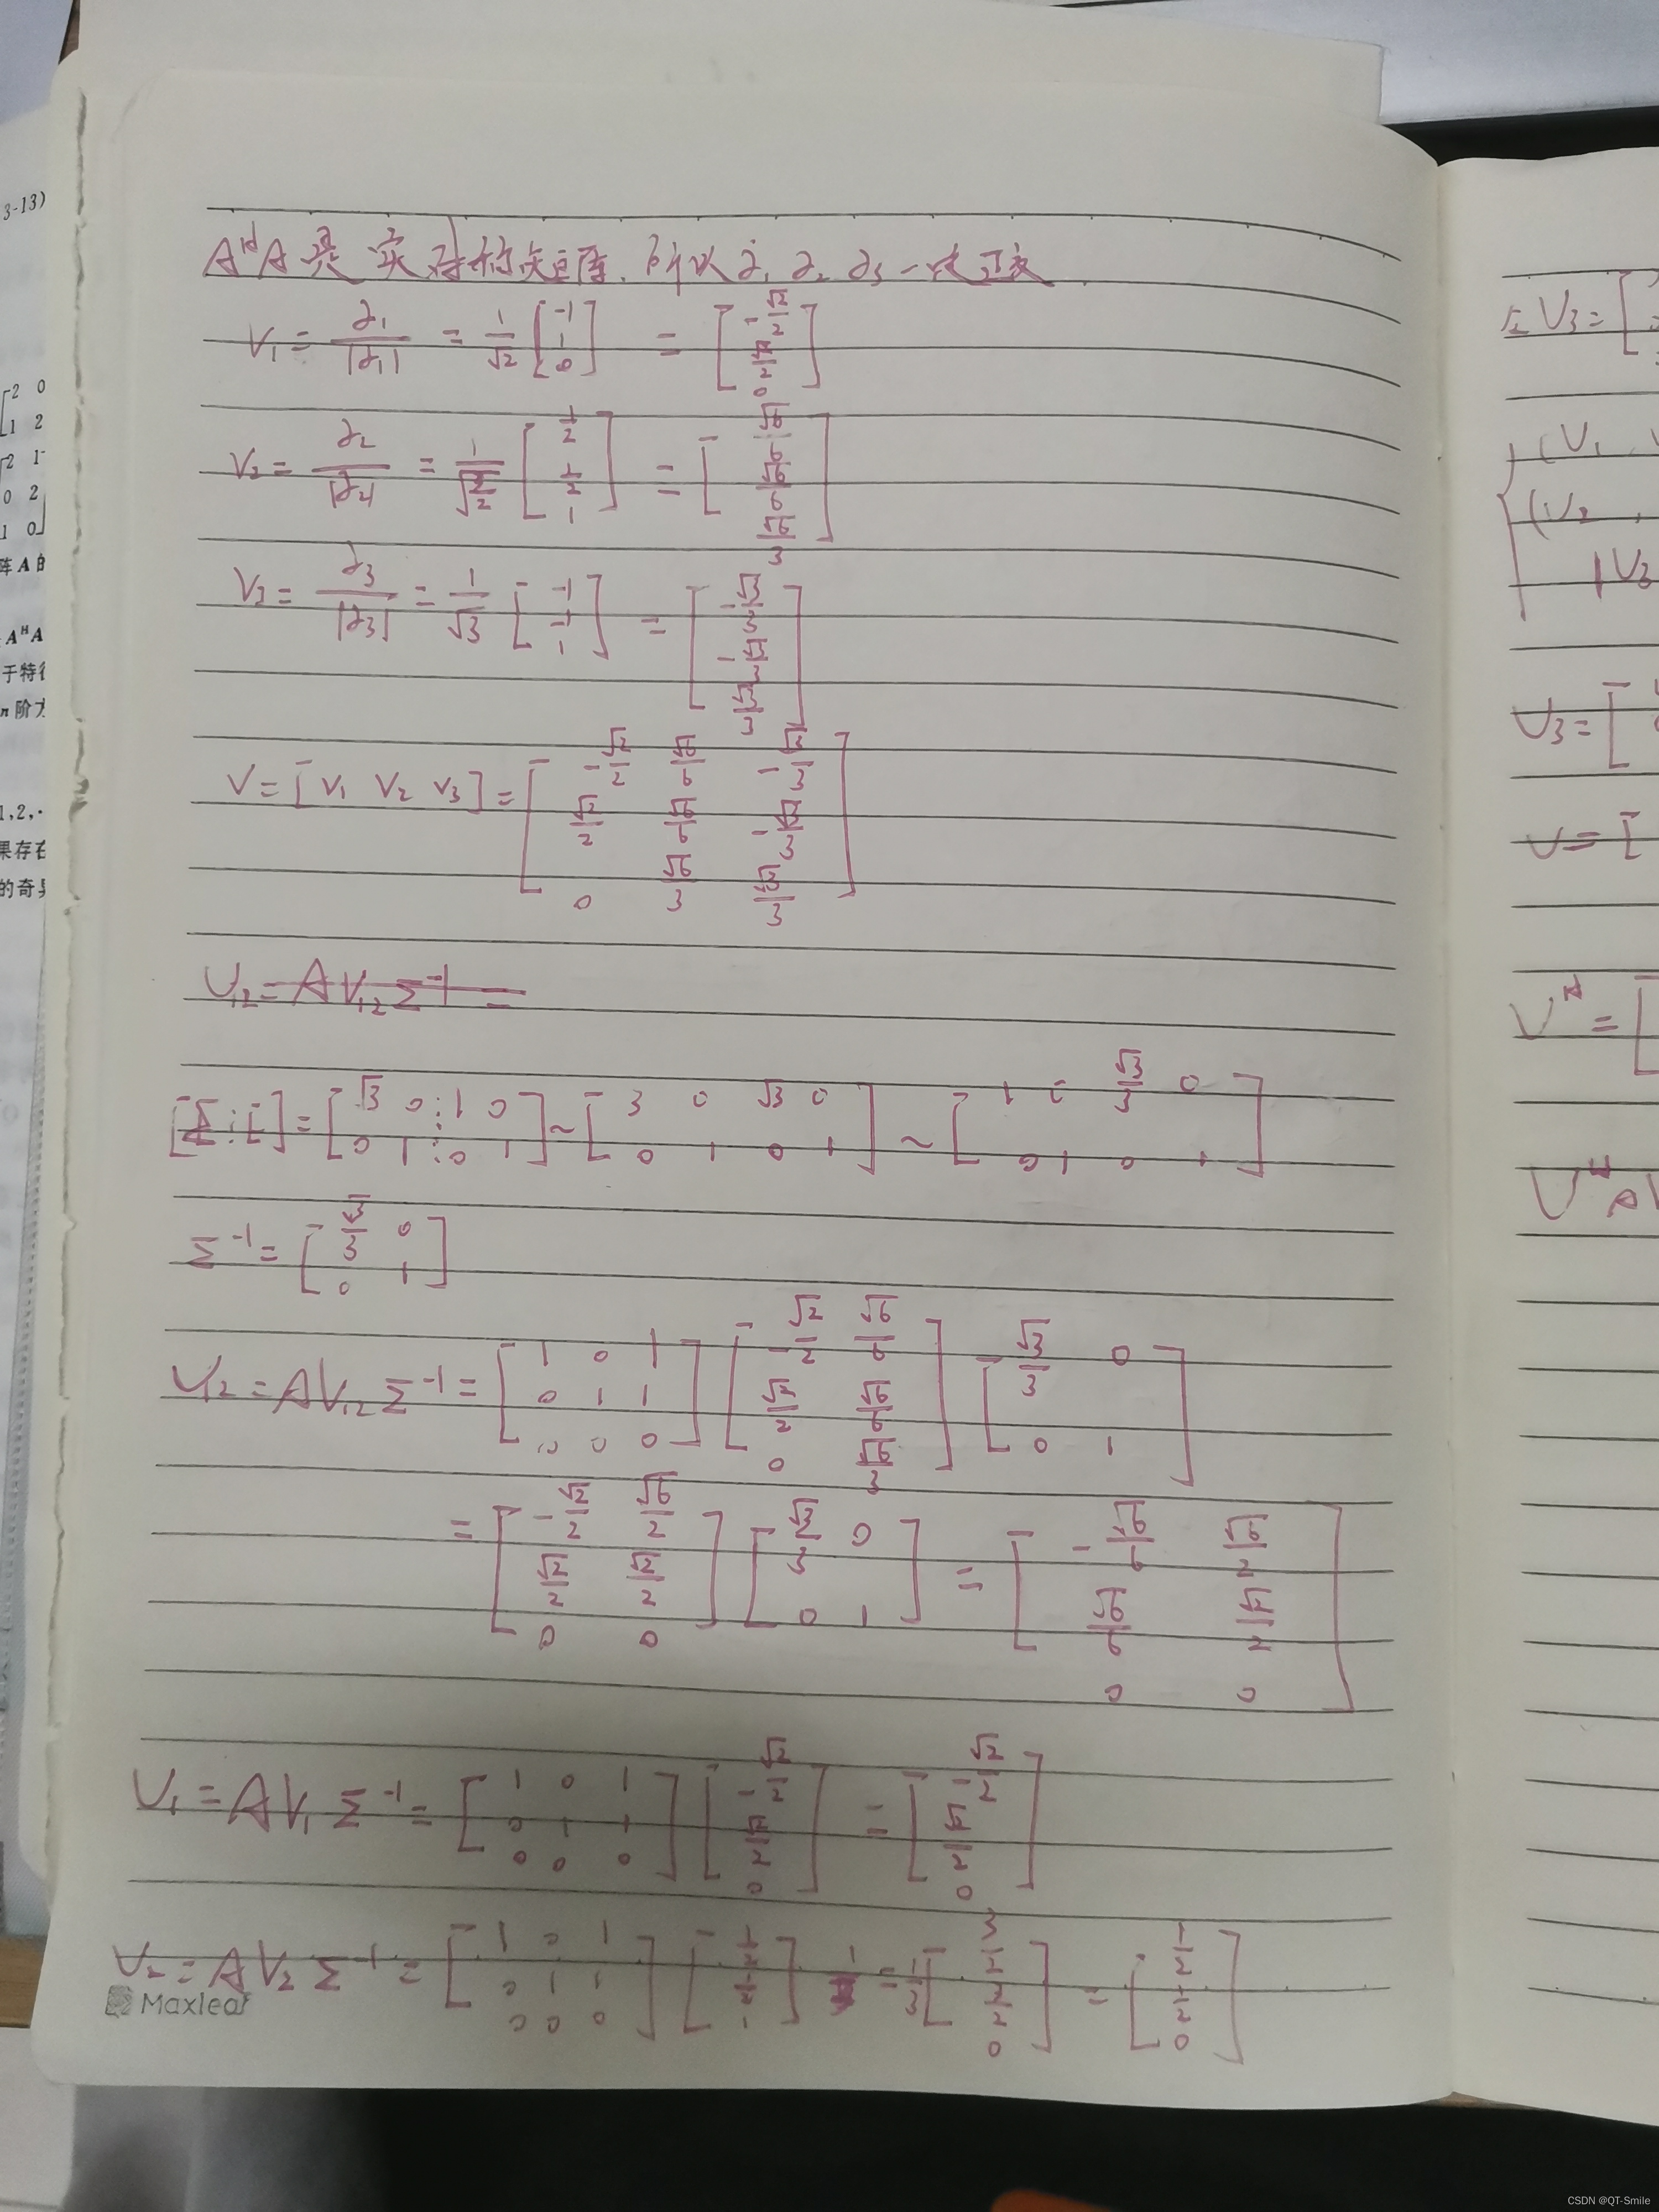 A^H A 是实对称矩阵,所以 α₁ α₂ α₃ 一定正交
V₁ = α₁/|α₁| = 1/√2 [-1; 1; 0] = [-√2/2; √2/2; 0]
V₂ = α₂/|α₂| = 1/√(3/2) [1/2; 1/2; 1] = [√6/6; √6/6; √6/3]
V₃ = α₃/|α₃| = 1/√3 [-1; -1; 1] = [-√3/3; -√3/3; √3/3]
V = [V₁ V₂ V₃] = [-√2/2 √6/6 -√3/3; √2/2 √6/6 -√3/3; 0 √6/3 √3/3]
U₁₂ = A V₁₂ Σ⁻¹ =
[Σ ⋮ E] = [√3 0 ⋮ 1 0; 0 1 ⋮ 0 1] ~ [3 0 √3 0; 0 1 0 1] ~ [1 0 √3/3 0; 0 1 0 1]
Σ⁻¹ = [√3/3 0; 0 1]
U₁₂ = A V₁₂ Σ⁻¹ = [1 0 1; 0 1 1; 0 0 0] [-√2/2 √6/6; √2/2 √6/6; 0 √6/3] [√3/3 0; 0 1]
= [-√2/2 √6/2; √2/2 √2/2; 0 0] [√3/3 0; 0 1] = [-√6/6 √6/2; √6/6 √2/2; 0 0]
U₁ = A V₁ Σ⁻¹ = [1 0 1; 0 1 1; 0 0 0] [-√2/2; √2/2; 0] = [-√2/2; √2/2; 0]
U₂ = A V₂ Σ⁻¹ = [1 0 1; 0 1 1; 0 0 0] [1/2; 1/2; 1] = 1/3 [3/2; 3/2; 0] = [1/2; 1/2; 0]
Maxleaf
3-13)
2 0
1 2
2 1
0 2
1 0
阵 A 的
A^H A
于特
n 阶方
1,2,·
果存在
的奇
V₃ = [
(U₁
(U₂ ,
|U₃
U₃ = [
U = [
V^H = [
U^H A V
CSDN @QT-Smile